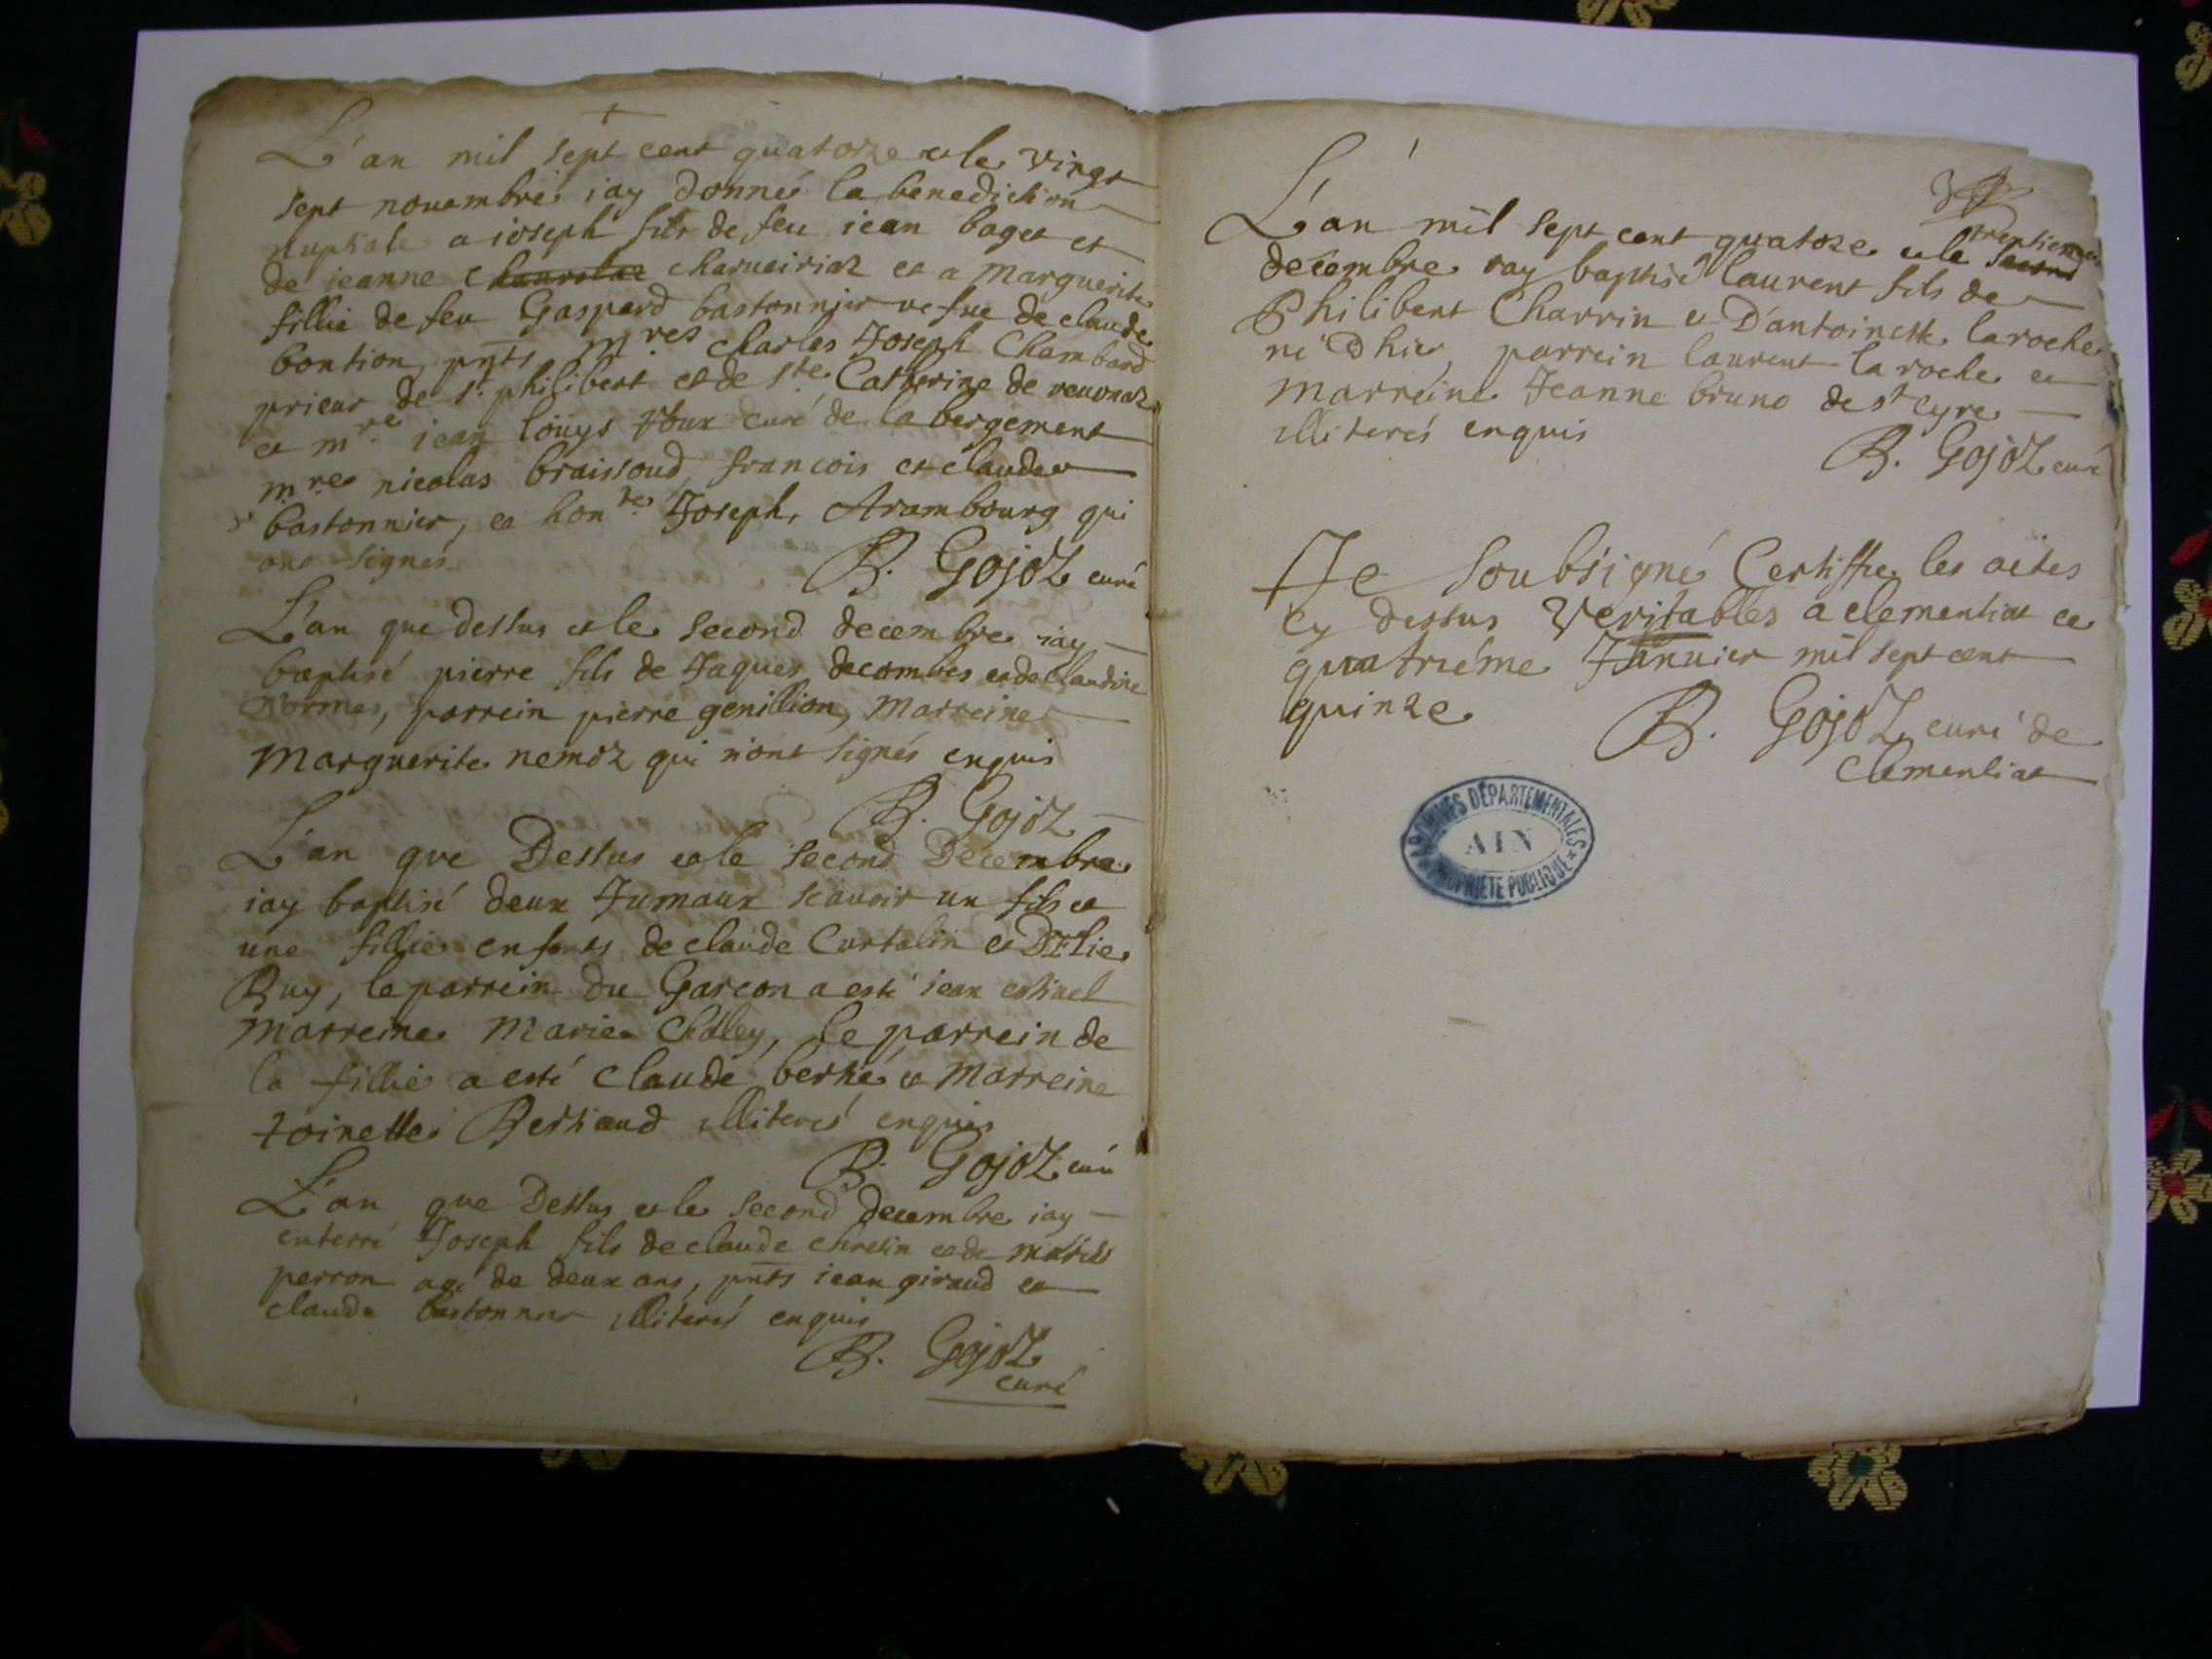 L'an mil sept cent quatorze et le vingt
sept nouembre iay donné la benediction
nuptiale a ioseph fils de feu iean baget et
de ieanne charueiriaz et a Marguerite
fillie de feu Gaspard bastonnier vefue de claude
bontion, pnts mres Charles Joseph Chambard
prieur de st philibert et de ste Catherine de
et mre iean loüys roux curé de la bergement
mre nicolas braissoud, francois et claude
bastonnier, et honte Joseph Arambourg qui
ont signés
B. Gojoz curé
L'an que dessus et le second decembre iay
baptisé pierre fils de Jaques decombes et de Claudine
Dormes, parrein pierre genillion, Marreine
Marguerite nemoz qui n'ont signés enquis
B. Gojoz
L'an que Dessus et le second Decembre
iay baptisé deux Jumaux scauoir un fils et
une fillie enfants de claude Curtalin et D'Elie
Buy, le parrein du Garcon a esté iean
Marreine Marie Chaley, le parrein de
la fillie a esté Claude berthé et Marreine
toinette Berthaud illiterés enquis
B. Gojoz curé
L'an que Dessus et le second decembre iay
enterré Joseph fils de claude chretin et de
perron agé de deux ans, pnts iean giraud et
claude bastonnier illiterés enquis
B. Gojoz
curé
3
trentieme
L'an mil sept cent quatorze et le second
decembre iay baptisé laurent fils de
Philibert Charrin et D'antoinette laroche
né D'hier, parrein laurent la roche et
marreine Jeanne bruno de st Cyre
illiterés enquis
B. Gojoz curé
Je soubsigné Certiffie les actes
Cy dessus Veritables a clementiat ce
quatriéme Januier mil sept cent
quinze
B. Gojoz curé de
Clementiat
ARCHIVES DÉPARTEMENTALES
AIN
PROPRIÉTÉ PUBLIQUE